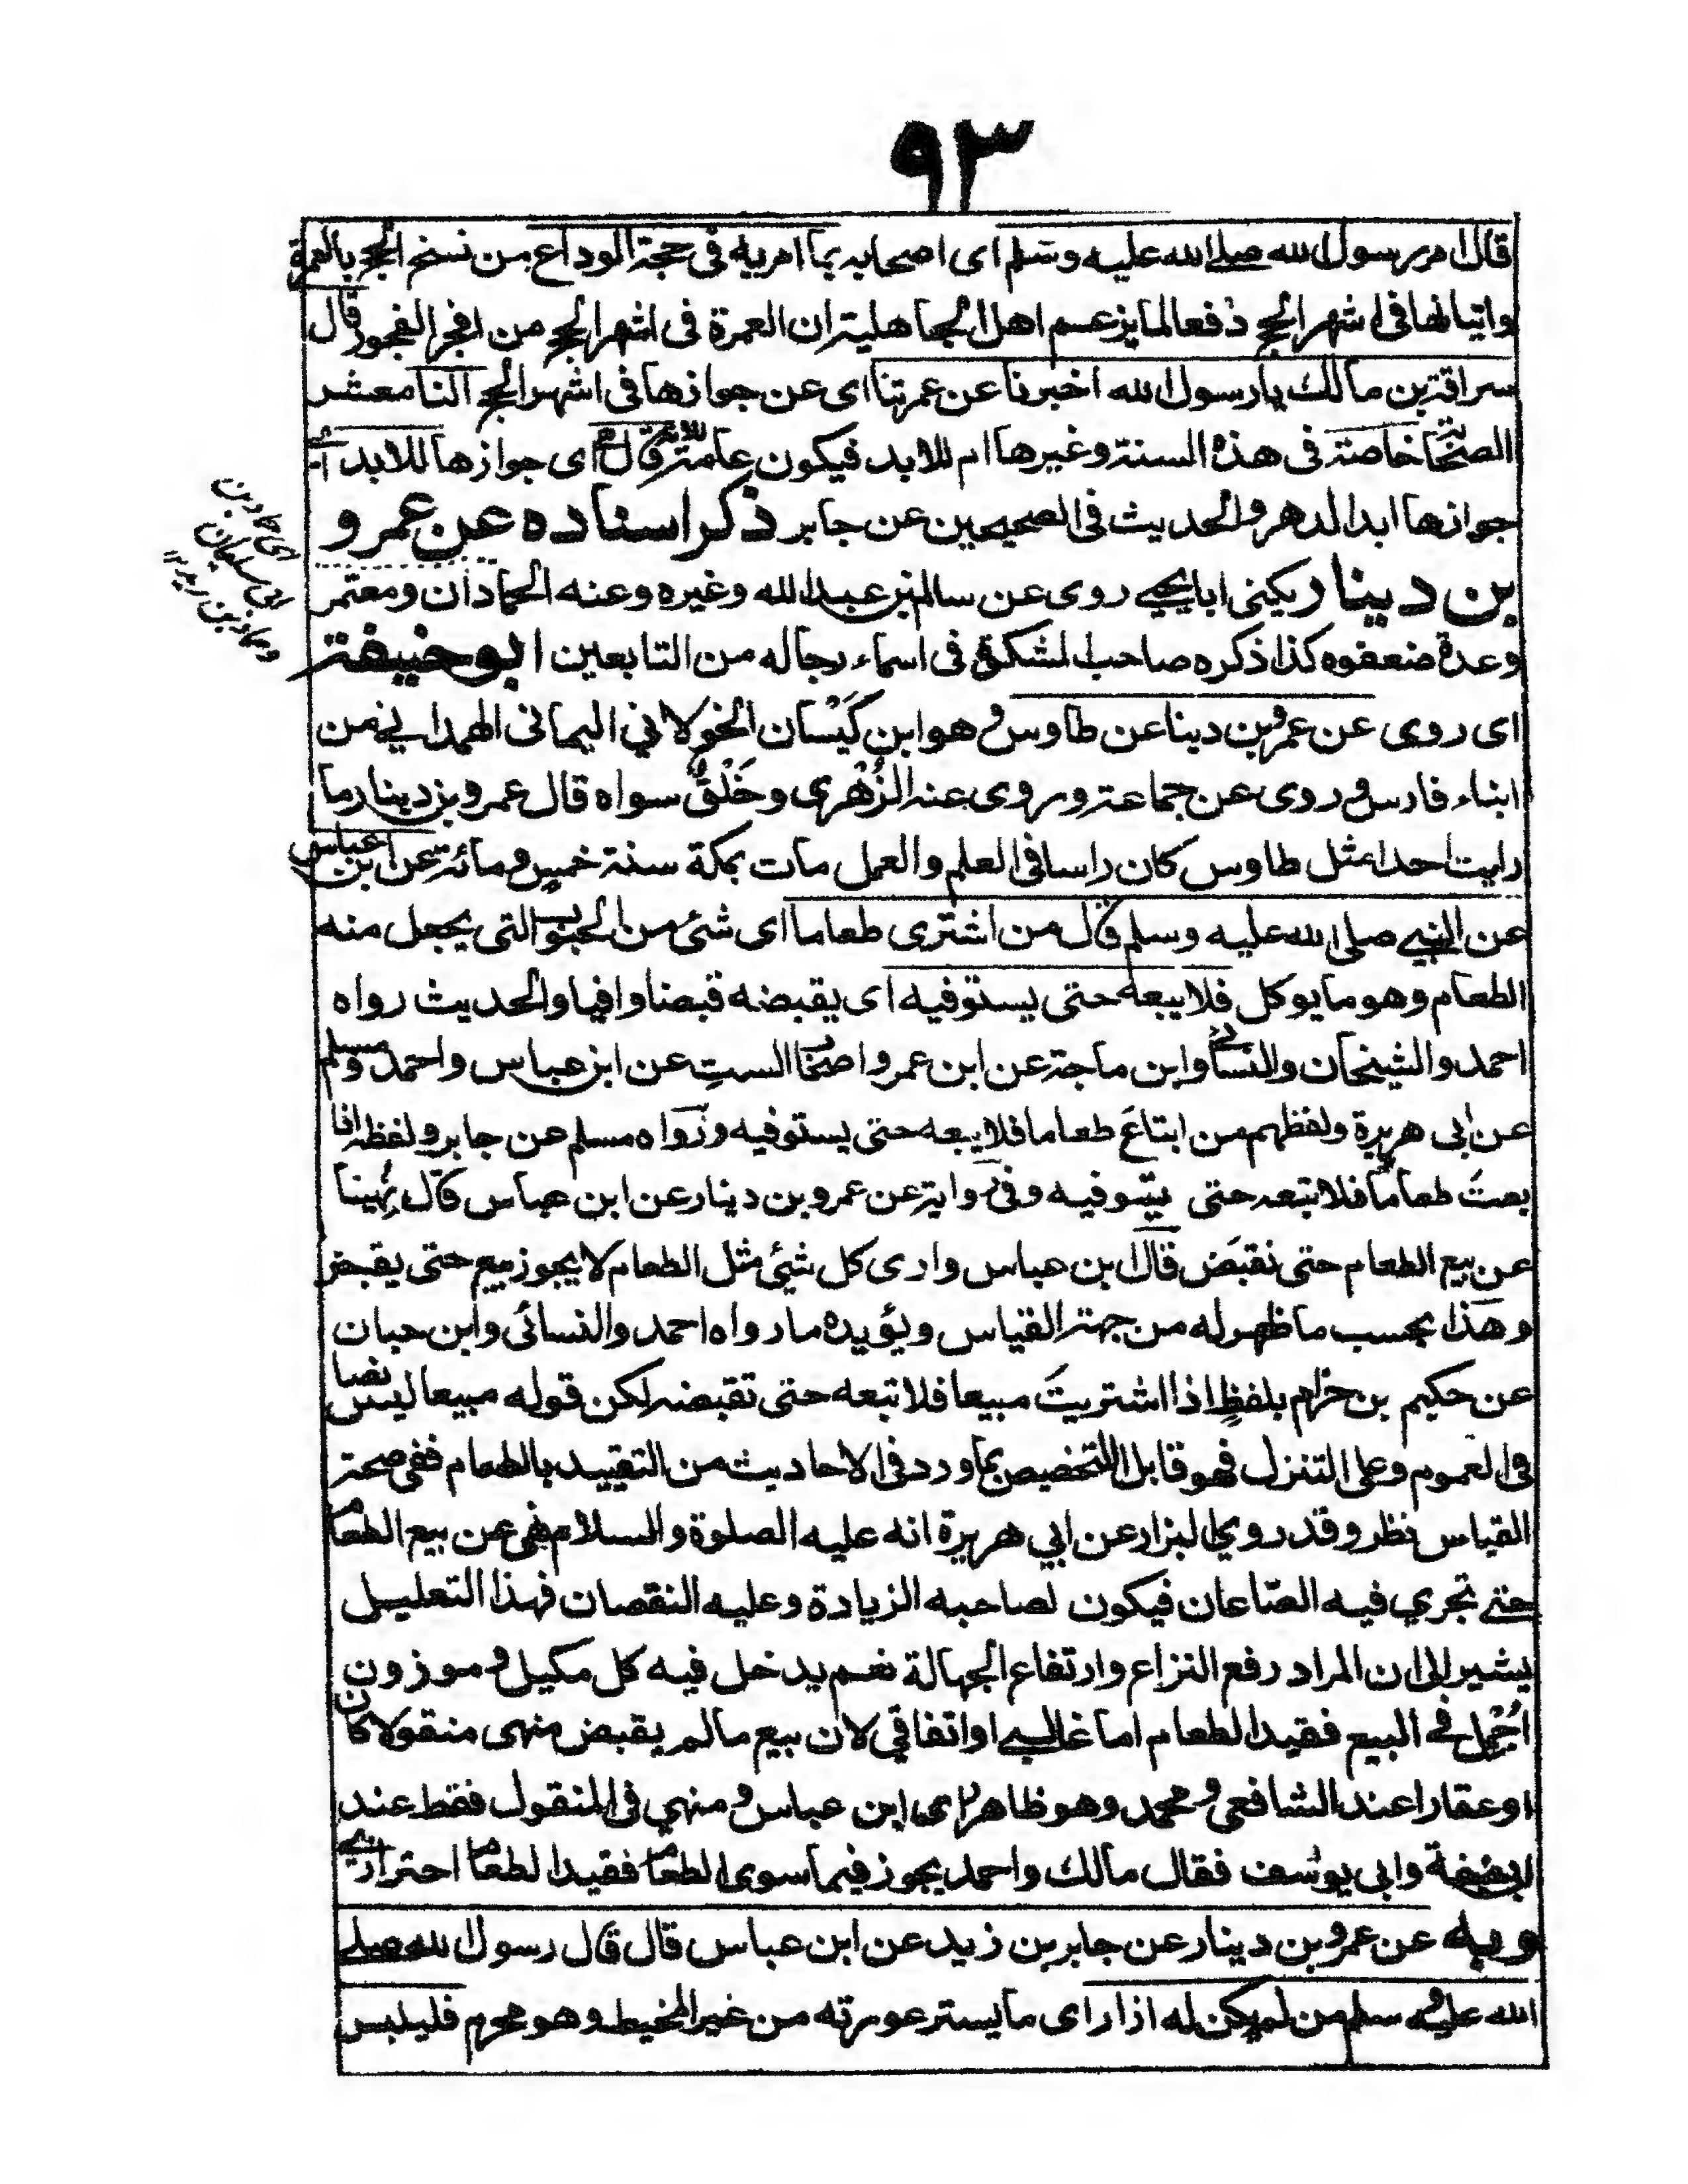 ٩٣
قال امر رسول الله صلى الله عليه وسلم اى اصحابه بما امر به فى حجة الوداع من نسخ الحج بالعمرة
واتيانها فى اشهر الحج دفعا لما يزعم اهل الجاهلية ان العمرة فى اشهر الحج من افجر الفجور قال
سراقة بن مالك يا رسول الله اخبرنا عن عمرتنا اى عن جوازها فى اشهر الحج النا معشر
الصحابة خاصة فى هذه السنة وغيرها ام للابد فيكون عامة قال للابد اى جوازها للابد اى
جوازها ابد الدهر والحديث فى الصحيحين عن جابر ذكر اسناده عن عمرو
بن دينار يكنى ابا يحيى روى عن سالم بن عبد الله وغيره وعنه الحمادان ومعتمر
وعدة ضعفوه كذا ذكره صاحب المشكوة فى اسماء رجاله من التابعين ابو حنيفة
اى روى عن عمرو بن دينا عن طاوس وهو ابن كَيْسَان الخولاني اليمانى الهمداني من
ابناء فارس وروى عن جماعة وروى عنه الزُهْرى وخَلْقٌ سواه قال عمرو بن دينار ما
رايت احدا مثل طاوس كان راسا فى العلم والعمل مات بمكة سنة خمس ومائة عن ابن عباس
عن النبي صلى الله عليه وسلم قال من اشترى طعاما اى شئ من الحبوب التى يجعل منه
الطعام وهو ما يوكل فلا يبعه حتى يستوفيه اى يقبضه قبضا وافيا والحديث رواه
احمد والشيخان والنسائى وابن ماجة عن ابن عمر واصحاب الستِ عن ابن عباس واحمد ومسلم
عن ابى هريرة ولفظهم من ابتاعَ طعاما فلا يبعه حتى يستوفيه ورواه مسلم عن جابر ولفظه اذا
بعتَ طعاما فلا تبعه حتى يستوفيه وفى رواية عن عمرو بن دينار عن ابن عباس قال نُهِينا
عن بيع الطعام حتى نقبَض قال ابن عباس وارى كل شئ مثل الطعام لا يجوز بيع حتى يقبض
وهذا بحسب ما ظهر له من جهة القياس ويؤيده ما رواه احمد والنسائى وابن حبان
عن حكيم بن حزام بلفظِ اذا اشتريتَ مبيعا فلا تبعه حتى تقبضه لكن قوله مبيعا ليس نصا
فى العموم وعلى التنزل فهو قابل للتخصيص بما ورد فى الاحاديث من التقييد بالطعام ففى صحة
القياس نظر وقد روى البزار عن ابي هريرة انه عليه الصلوة والسلام نهى عن بيع الطعام
حتى تجري فيه الصّاعان فيكون لصاحبه الزيادة وعليه النقصان فهذا التعليل
يشير الى ان المراد رفع النزاع وارتفاع الجهالة نعم يدخل فيه كل مكيل وموزون
اجمل في البيع فقيد الطعام اما غالبي او اتفاقي لان بيع ما لم يقبض منهى منقولا كان
او عقارا عند الشافعى ومحمد وهو ظاهر راى ابن عباس ومنهي فى المنقول فقط عند
ابى حنيفة وابى يوسف فقال مالك واحمد يجوز فيما سوى الطعام فقيد الطعام احترازي
وبه عن عمرو بن دينار عن جابر بن زيد عن ابن عباس قال قال رسول الله صلى
الله عليه وسلم من لم يكن له ازار اى ما يستر عورته من غير المخيط وهو محرم فليلبس
اى حماد بن
ابى سليمان
وحماد بن زيد